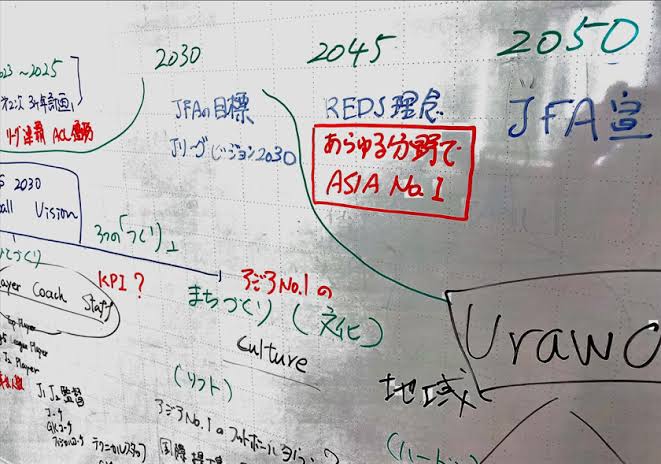 2030
2045
2050
023～2025
JFAの目標
REDS理念
JFA宣
オ2次 3ヶ年計画
リーグ連覇 ACL優勝
Jリーグビジョン2030
あらゆる分野で
ASIA No.1
2030
all Vision
3つの「づくり」
KPI?
アジアNo.1の
まちづくり(文化)
culture
ayer Coach Staff
Top Player
Player
J2 Player
Urawa
地域
(ソフト)
J1 J2 監督
コーチ
GKコーチ
テクニカルスタッフ
アジアNo.1のフットボールタウン?
国際
(ハート